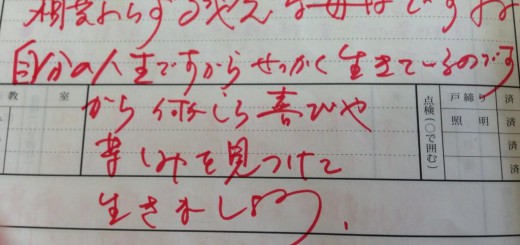 相変わらず ですね
自分の人生ですからせっかく生きているのです
から何かしら喜びや
楽しみを見つけて
生きましょう.
教 室
点検(○で囲む)
戸締り 済
照 明 済
済
済